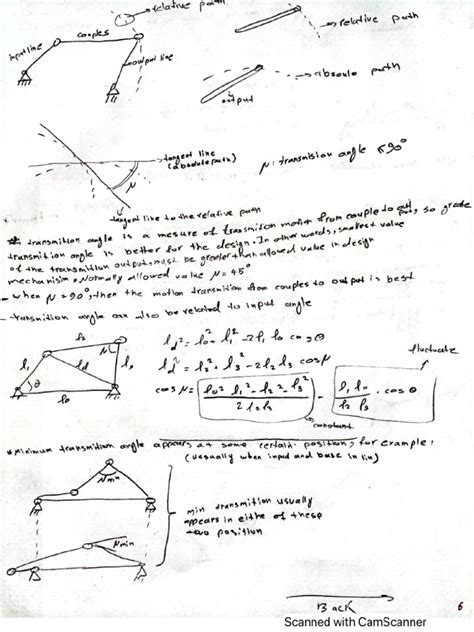 relative path
couples
input line
output line
relative path
absoulo path
output
tangent line
(absolute path)
μ: transmision angle ≤90°
μ
tangent line to the relative path
* transmition angle is a mesure of transmition motion from couple to output, so greate
transmition angle is better for the design. In other words, smallest value
of the transmition output, must be greater than allowed value in design
mechanisim. Normally allowed value μ=45°
- when μ=90°, then the motion transmition from couples to output is best
- transmition angle can also be related to input angle
l₂
μ
l₁
l_d
l₃
θ
l₀
l_d² = l₀² + l₁² - 2l₁ l₀ cos θ
l_d² = l₂² + l₃² - 2l₂ l₃ cos μ
fluctuate
cos μ = l₀² l₁² - l₂² - l₃² / 2 l₂ l₃ - l₁ l₀ / l₂ l₃ · cos θ
constant
* Minimum transmition angle appears an some certain position, for example:
(ususually when input and base in lin)
μmin
min transmition usually
appears in eithe of these
two position
μmin
Back
6
Scanned with CamScanner